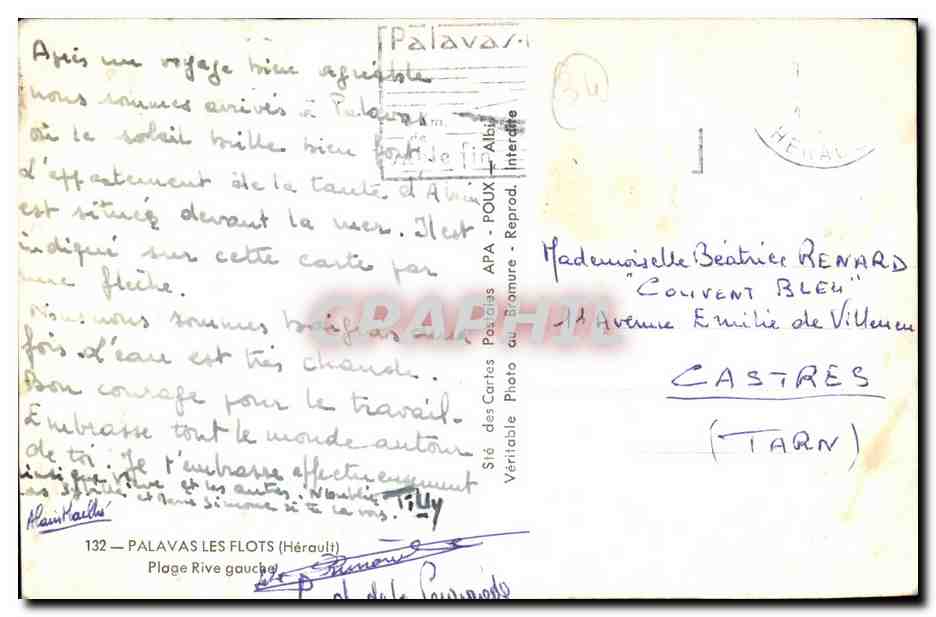 Après un voyage bien agréable
nous sommes arrivés à Palavas
où le soleil brille bien fort
L'appartement de la tante d'Alain
est situeé devant la mer. Il est
indiqué sur cette carte par
une flèche.
nous sommes baignés une
fois l'eau est très chaude.
Bon courage pour le travail.
Embrasse tout le monde autour
de toi. Je t'embrasse affectueusement
ainsi que et les autres. N'oublie
pas et Simone si tu la vois.
Tilly
Alain
132 — PALAVAS LES FLOTS (Hérault)
Plage Rive gauche
de la
Palavas
Sté des Cartes Postales APA - POUX — Albi
Véritable Photo au Bromure - Reprod. Interdite
34
HERAULT
Mademoiselle Béatrice RENARD
"COUVENT BLEU"
Avenue Emilie de Villeneu
CASTRES
(TARN)
CRAPHIL